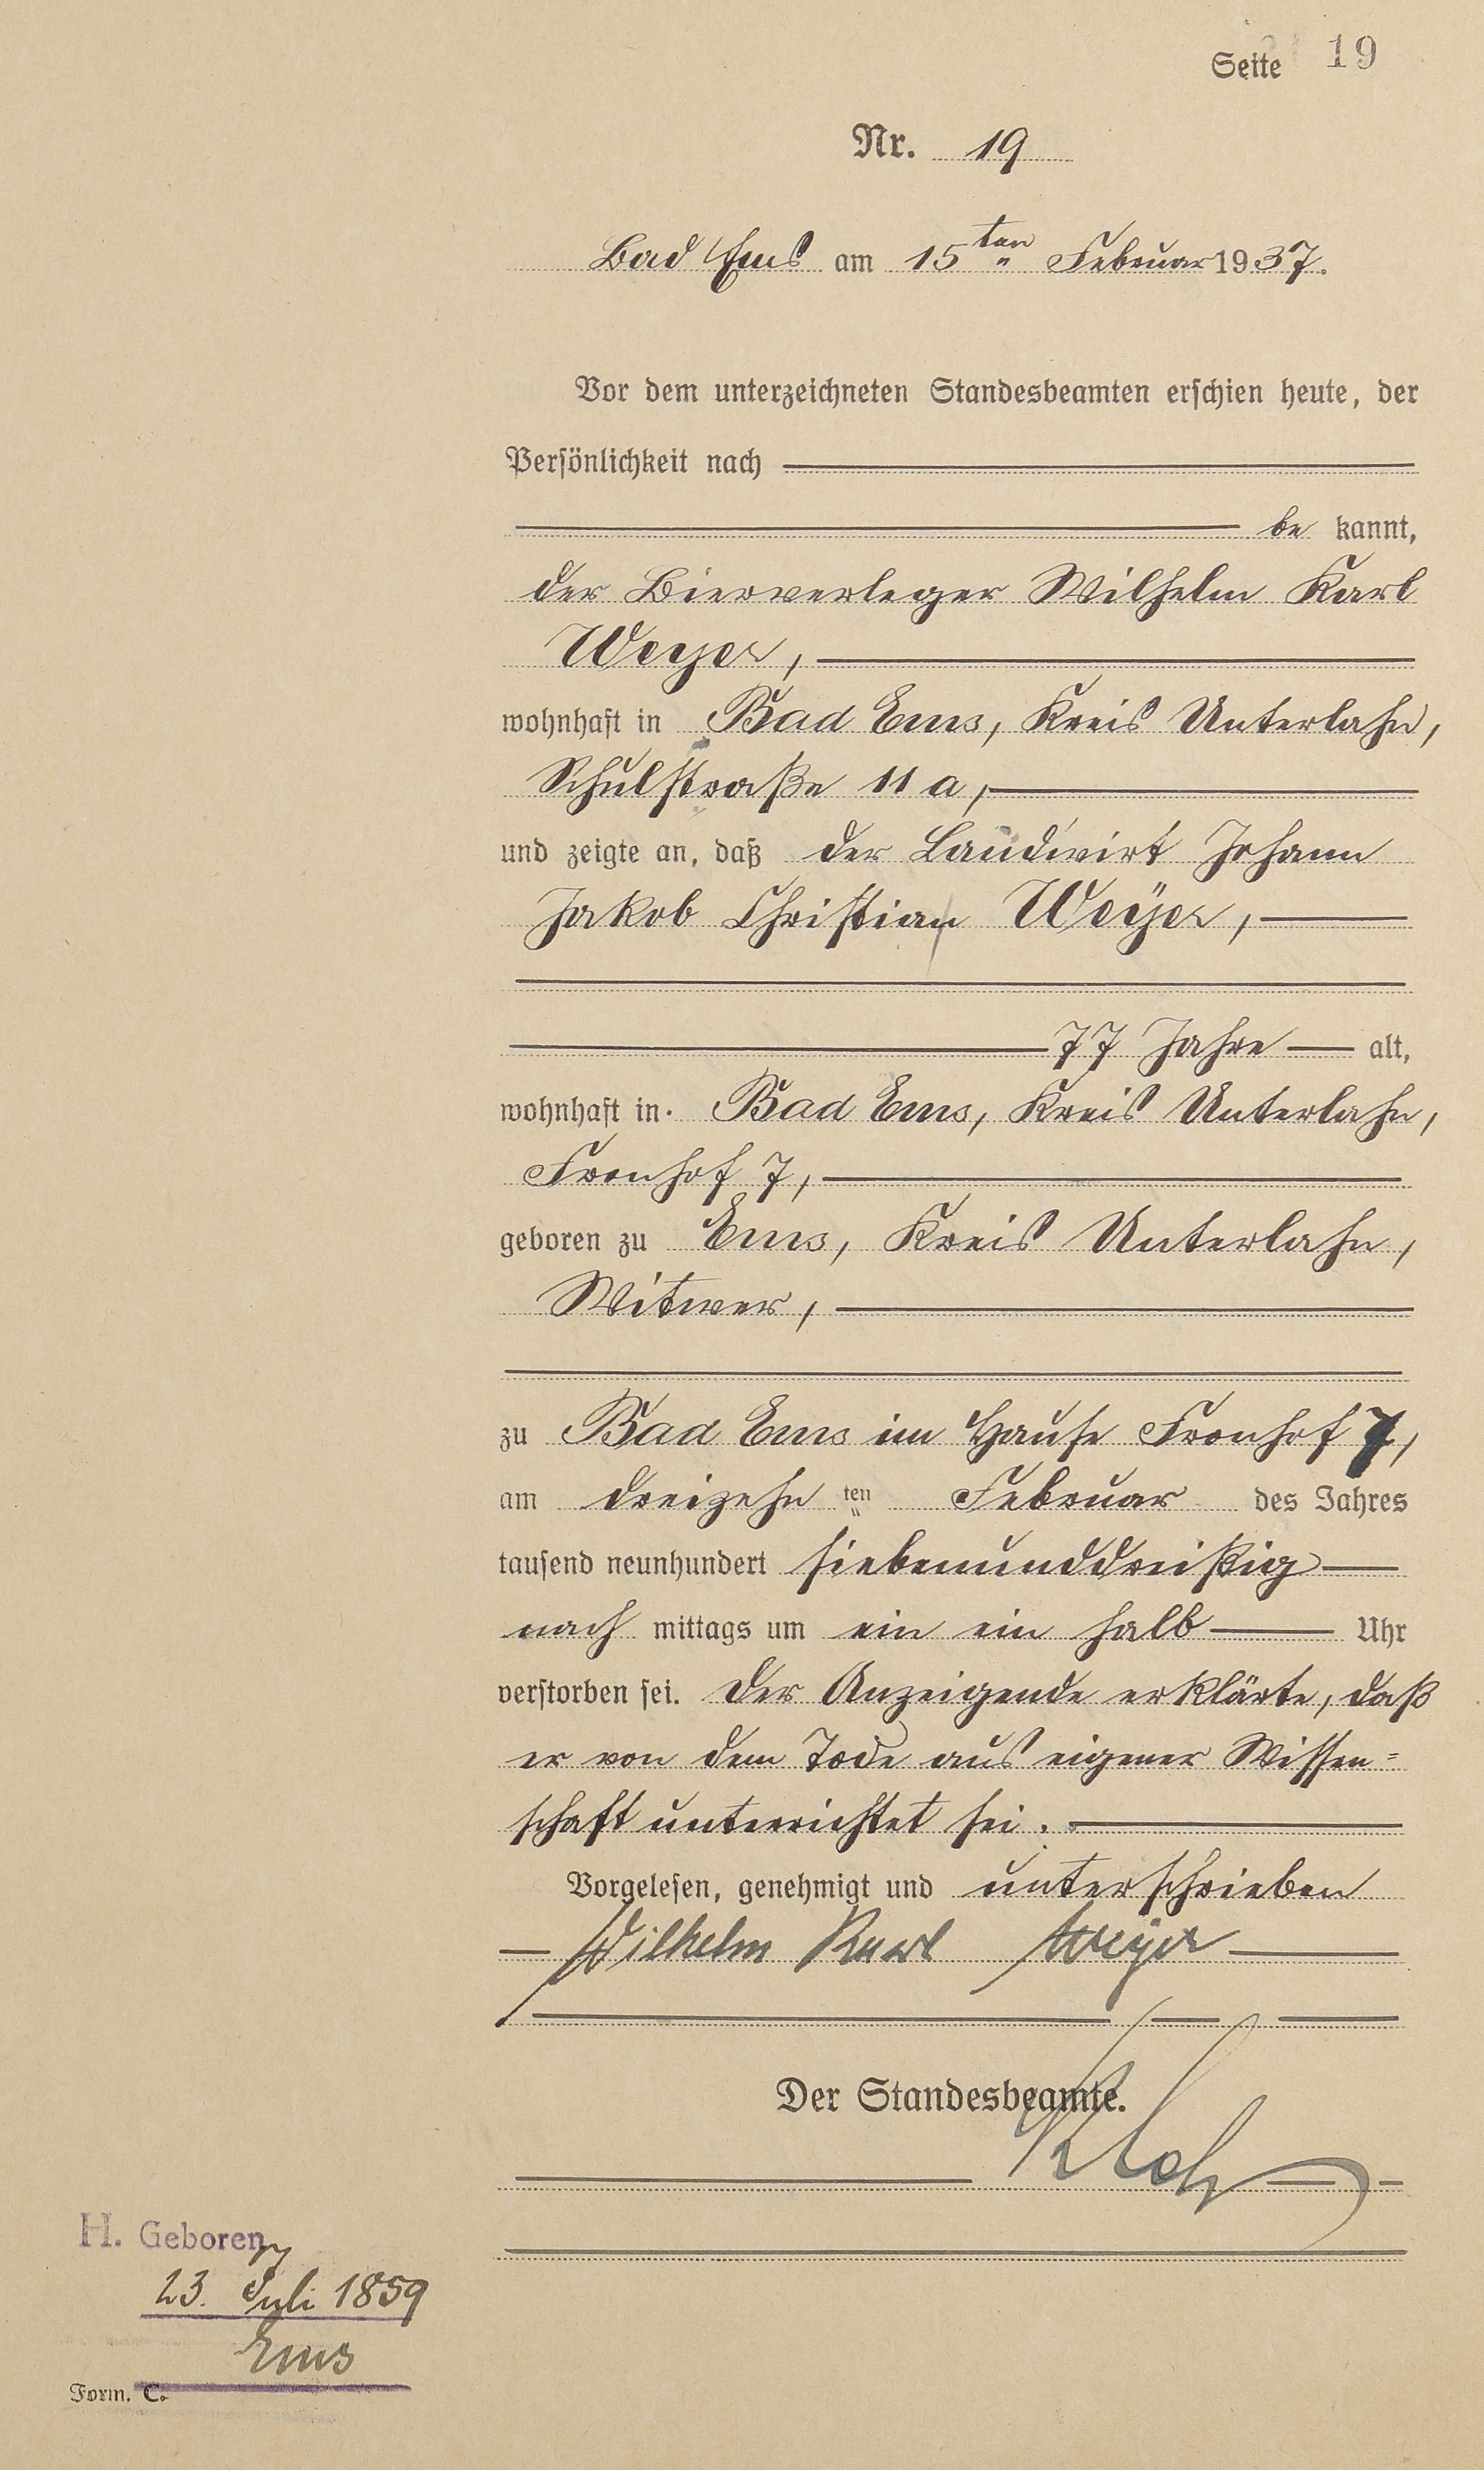 Seite 19
Nr. 19
Bad Ems am 15ten Februar 1937.
Vor dem unterzeichneten Standesbeamten erschien heute, der
Persönlichkeit nach
be kannt,
der Bierverleger Wilhelm Karl
Weyer,
wohnhaft in Bad Ems, Kreis Unterlahn,
Schulstraße 11 a,
und zeigte an, daß der Landwirt Johann
Jakob Christian Weÿer,
77 Jahre alt,
wohnhaft in Bad Ems, Kreis Unterlahn,
Fronhof 7,
geboren zu Ems, Kreis Unterlahn,
Witwer,
zu Bad Ems im Hause Fronhof 7,
am dreizehn ten Februar des Jahres
tausend neunhundert siebenunddreißig
nach mittags um ein ein halb Uhr
verstorben sei. Der Anzeigende erklärte, daß
er von dem Tode aus eigener Wissen=
schaft unterrichtet sei.
Vorgelesen, genehmigt und unterschrieben
Wilhelm Karl Weyer
Der Standesbeamte.
H. Geboren
23. Juli 1859
Ems
Form. C.